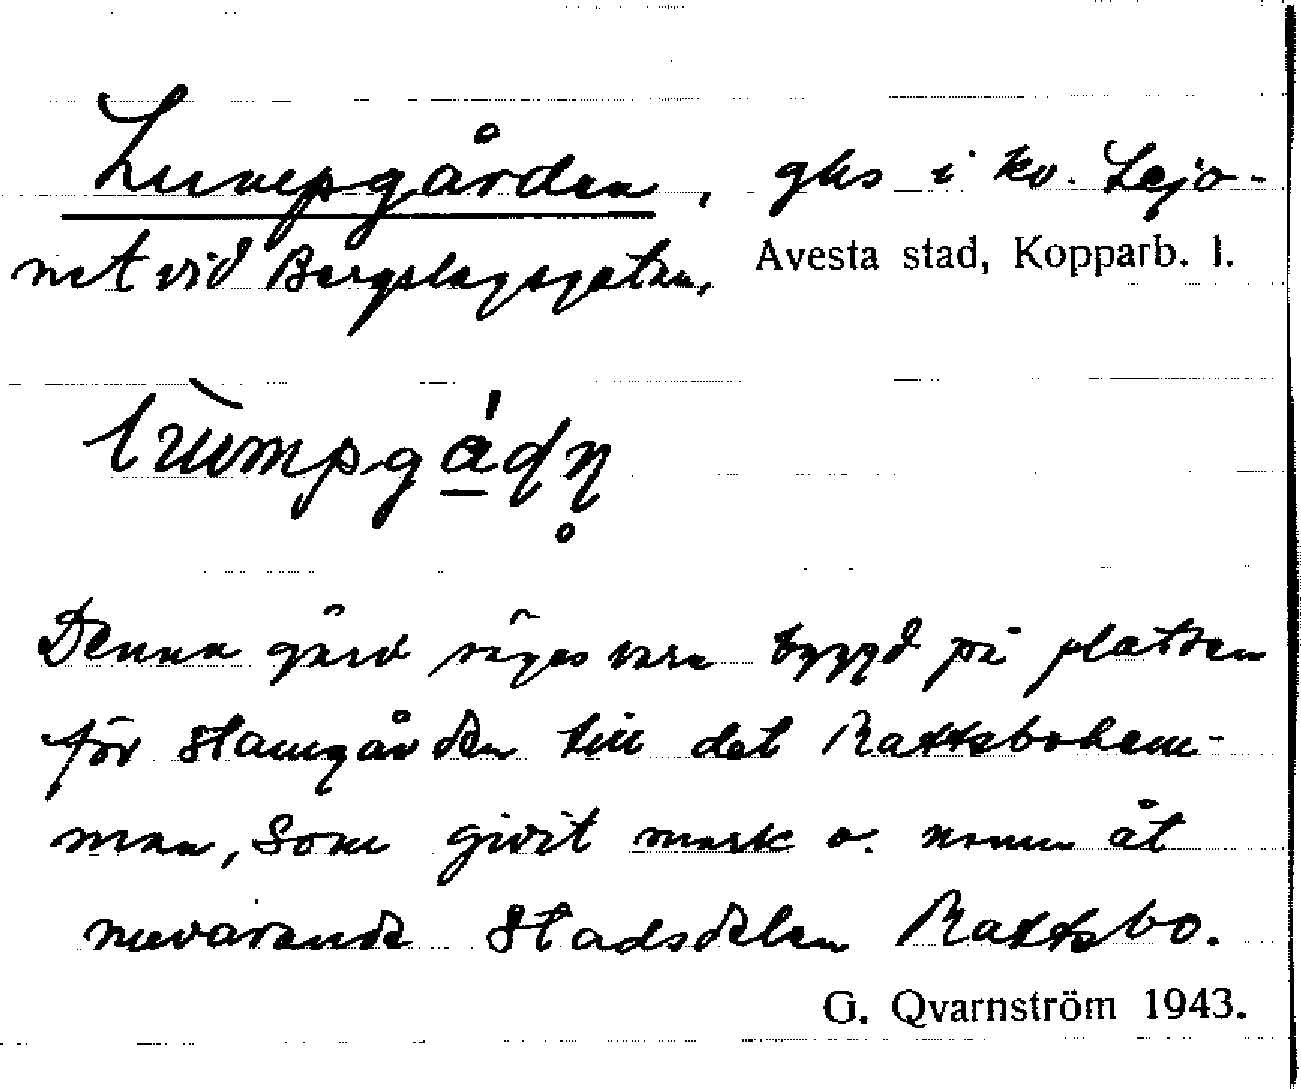 Lumpgården, ghs i kv. Lejo-
net vid Bergslagsgatan,
Avesta stad, Kopparb. l.
Denna gård säges vara byggd på platsen
för stamgården till det Rattsbohem-
man, som givit mark o. namn åt
nuvarande stadsdelen Rattsbo.
G. Qvarnström 1943.